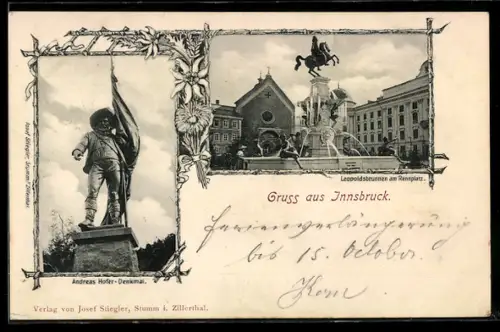 Josef Stiegler, Stumm Zillerthal.
Andreas Hofer-Denkmal.
Leopoldsbrunnen am Rennplatz.
Gruss aus Innsbruck.
Ferienverlängerung
bis 15. October
Verlag von Josef Stiegler, Stumm i. Zillerthal.